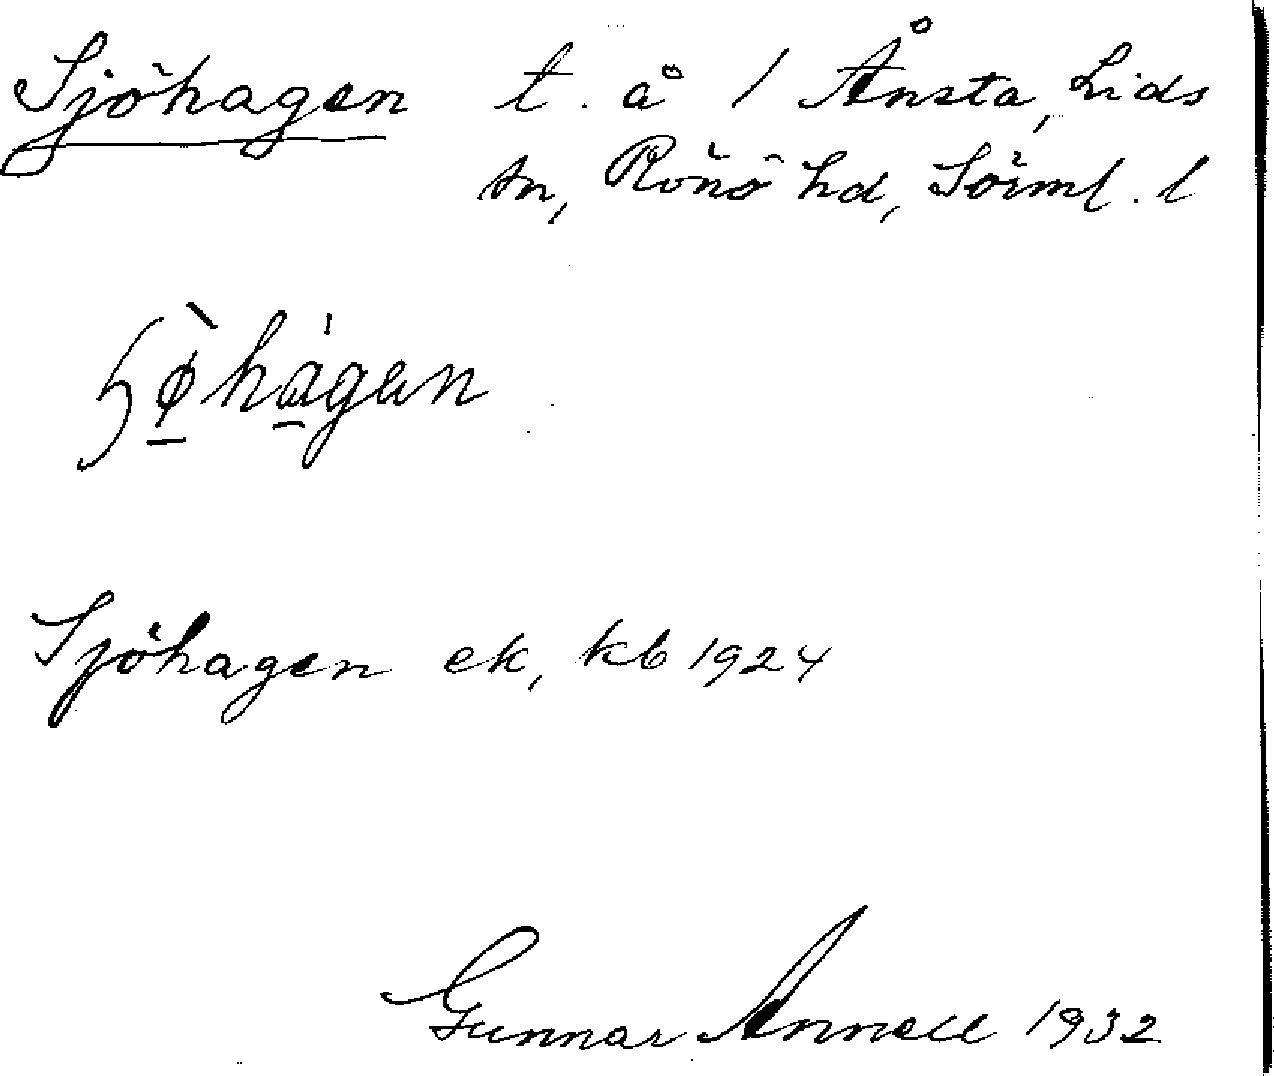 Sjöhagen t. å / Ånsta, Lids
sn, Rönö hd, Sörml. l
ɧø̀hágen
Sjöhagen ek, kb 1924
Gunnar Annell 1932